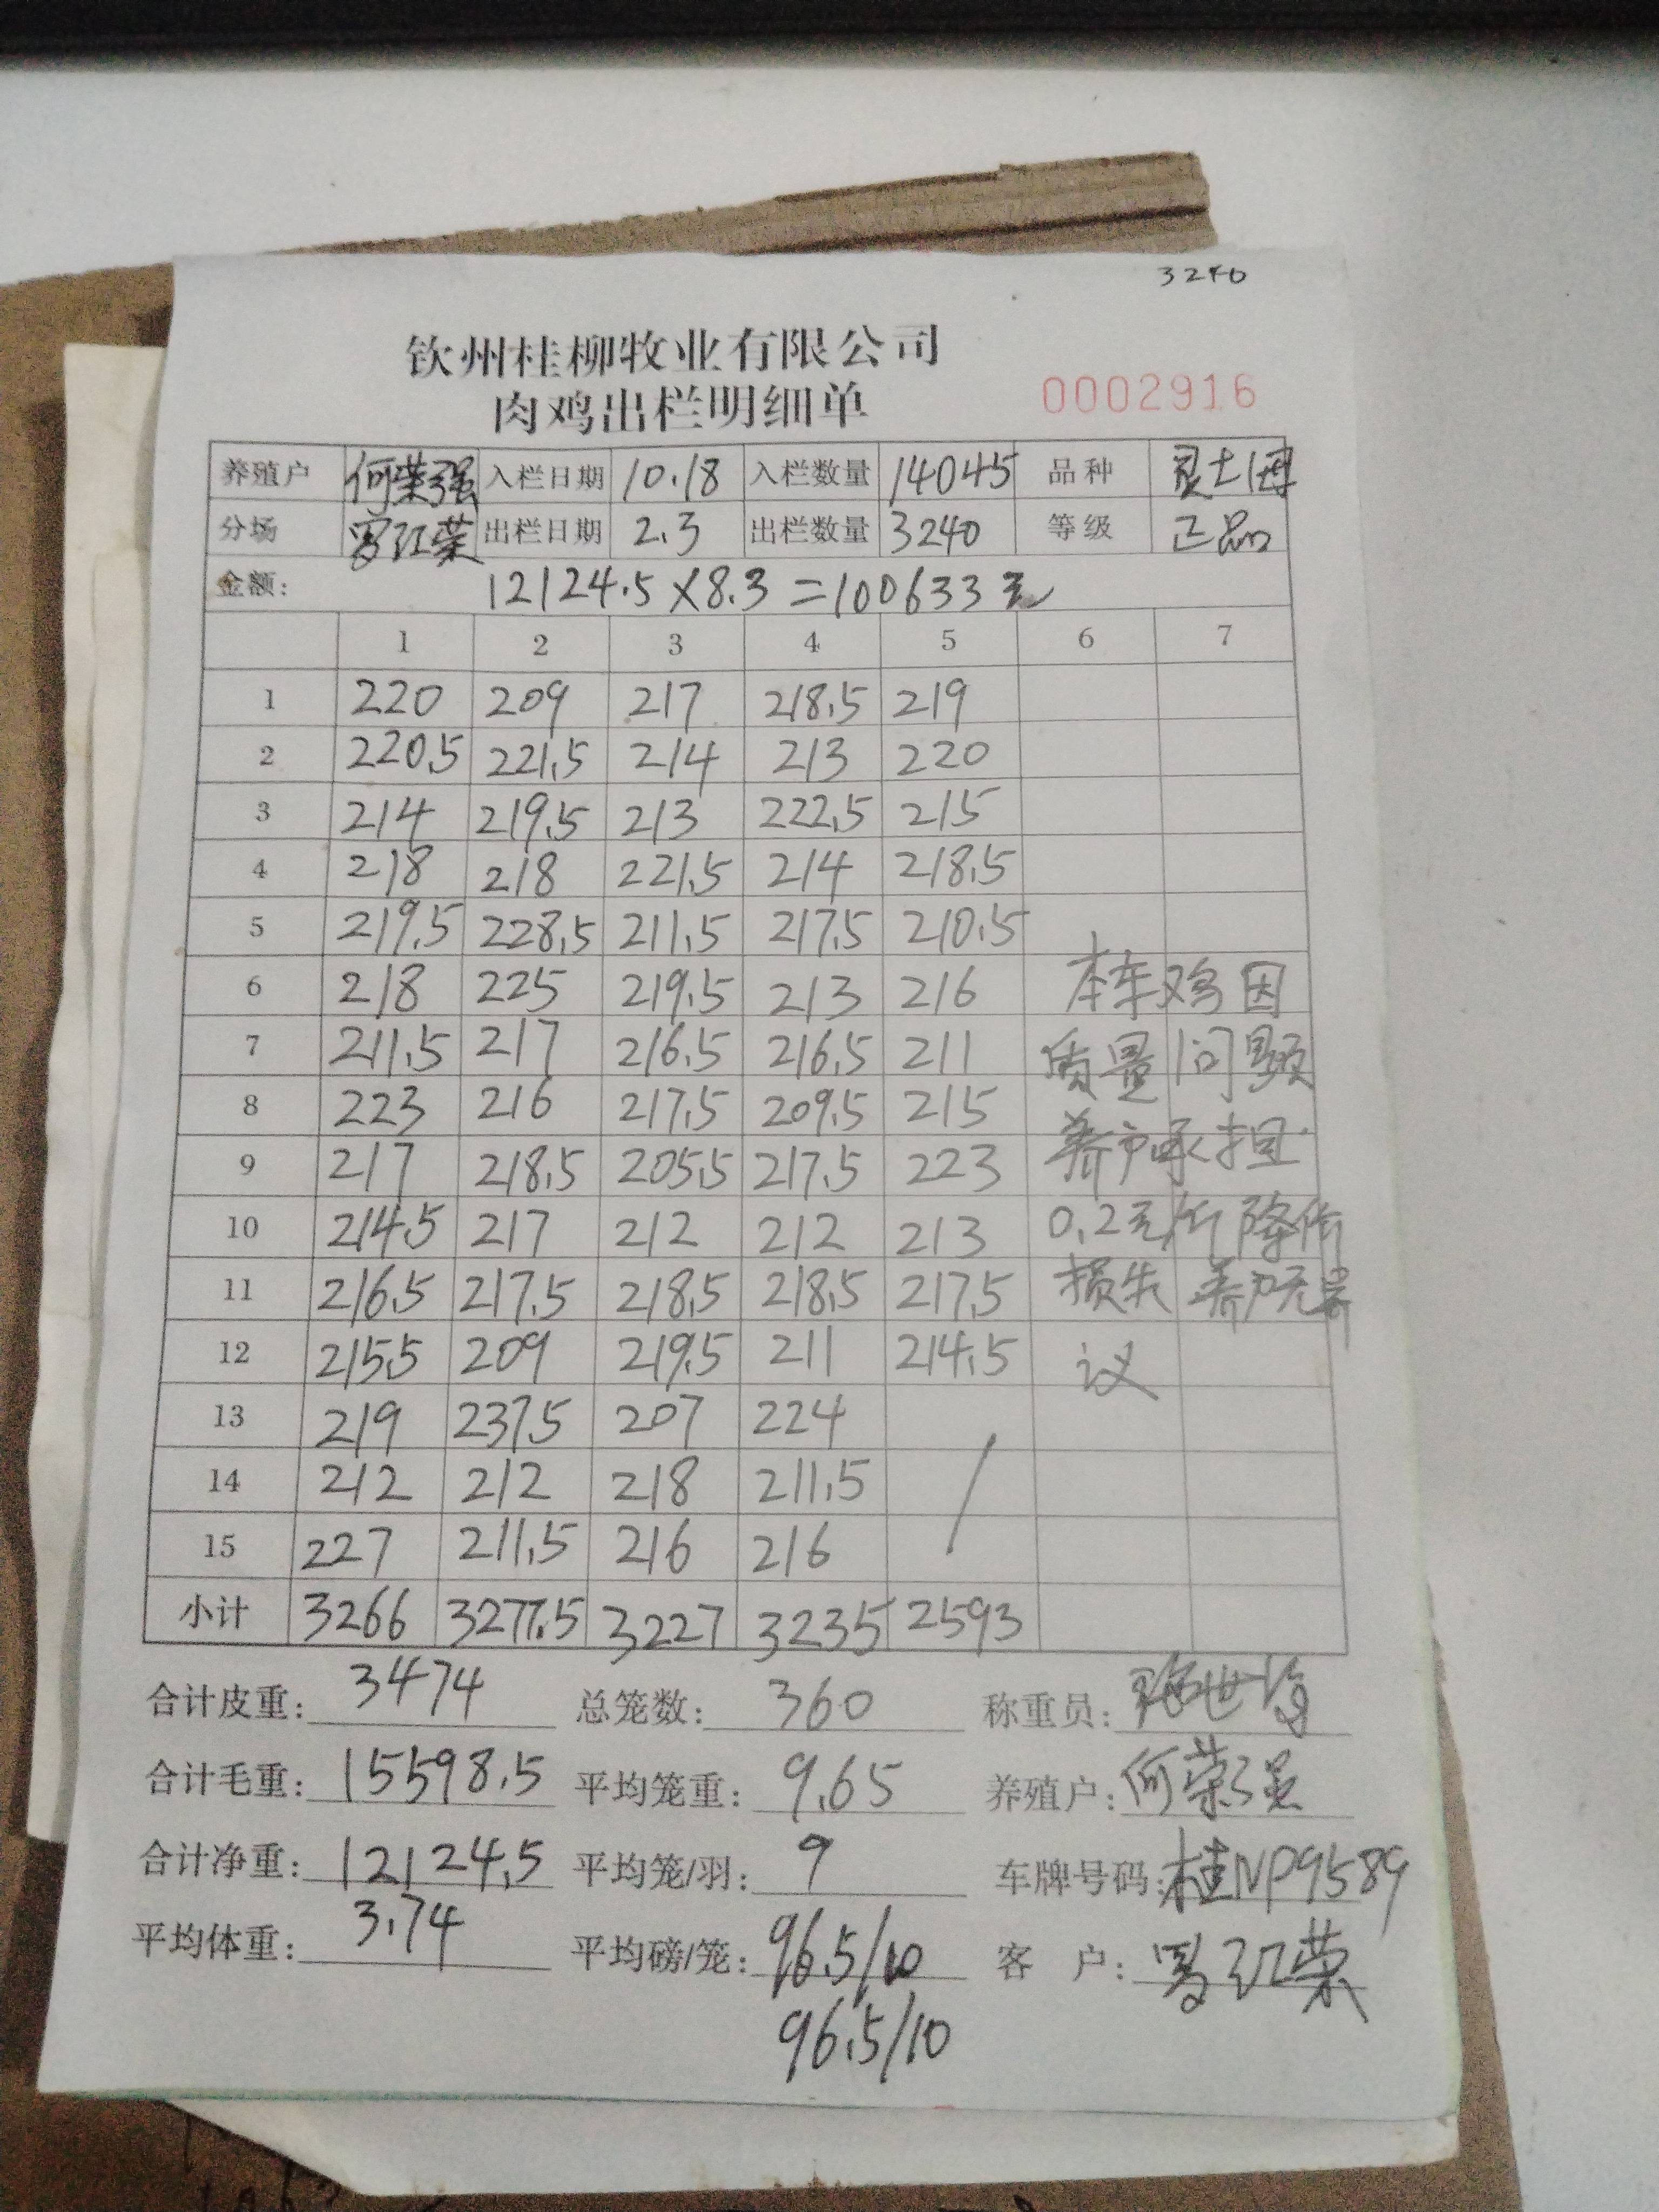 3240
钦州桂柳牧业有限公司
肉鸡出栏明细单 0002916
养殖户 何荣强 入栏日期 10.18 入栏数量 14045 品种 灵土
分场 罗红荣 出栏日期 2.3 出栏数量 3240 等级 正品
金额: 12124.5×8.3=100633元
1 2 3 4 5 6 7
1 220 209 217 218.5 219
2 220.5 221.5 214 213 220
3 214 219.5 213 222.5 215
4 218 218 221.5 214 218.5
5 219.5 228.5 211.5 217.5 210.5
6 218 225 219.5 213 216 本车鸡因
7 211.5 217 216.5 216.5 211 质量问题
8 223 216 217.5 209.5 215 养户承担
9 217 218.5 205.5 217.5 223
10 214.5 217 212 212 213 0.2元/斤降价
11 216.5 217.5 218.5 218.5 217.5 损失 养户无异
12 215.5 209 219.5 211 214.5 议
13 219 237.5 207 224
14 212 212 218 211.5
15 227 211.5 216 216
小计 3266 3277.5 3227 3235 2593
合计皮重: 3474 总笼数: 360 称重员:
合计毛重: 15598.5 平均笼重: 9.65 养殖户: 何荣强
合计净重: 12124.5 平均笼/羽: 9 车牌号码: 桂NP9589
平均体重: 3.74 平均磅/笼: 96.5/10 客 户: 罗红荣
96.5/10